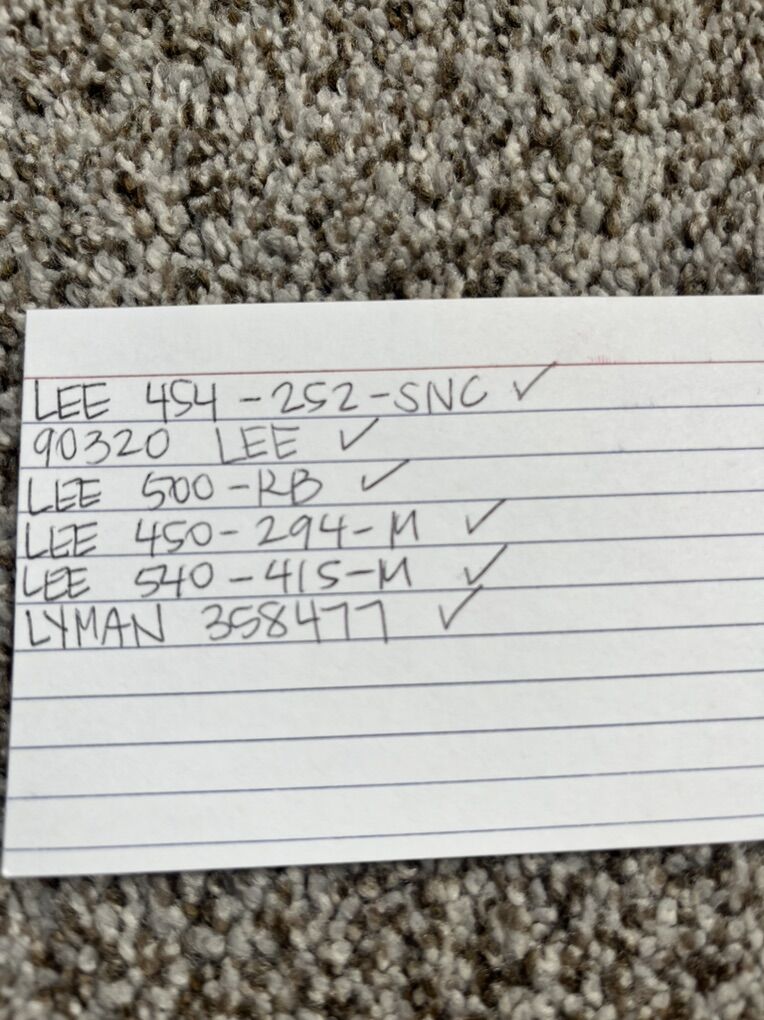 LEE 454-252-SNC ✓
90320 LEE ✓
LEE 500-RB ✓
LEE 450-294-M ✓
LEE 540-415-M ✓
LYMAN 358477 ✓